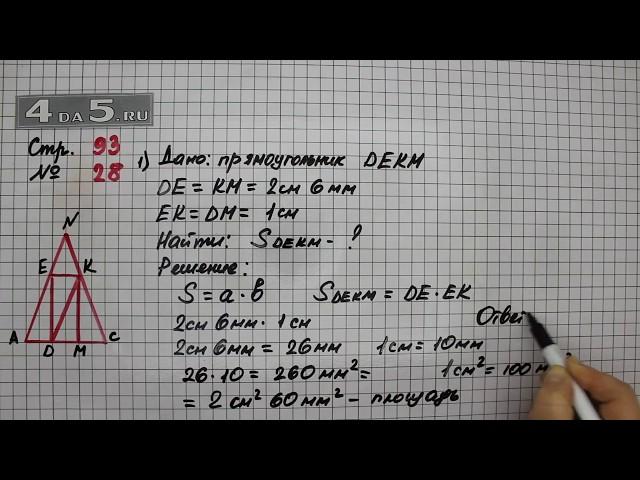 4 DA 5.RU
Стр. 93
№ 28
1) Дано: прямоугольник DEKM
DE = KM = 2см 6мм
EK = DM = 1см
Найти: SDEKM - ?
Решение:
S = a · b SDEKM = DE · EK
2см 6мм · 1см
2см 6мм = 26мм 1см = 10мм
26 · 10 = 260 мм² = 1см² = 100 мм²
= 2 см² 60 мм² - площадь
Отве
N
E K
A D M C